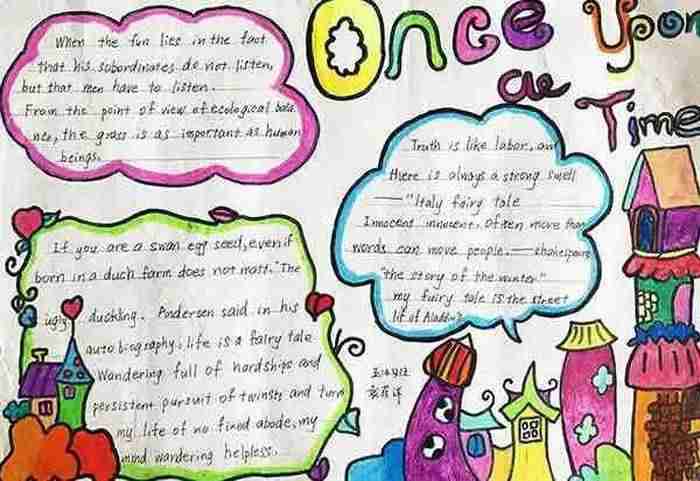 Once Upon
a Time
When the fun lies in the fact
that his subordinates do not listen,
but that men have to listen.
From the point of view of ecological bala
nce, the grass is as important as human
beings.
Truth is like labor, an
there is always a strong smell
——"Italy fairy tale
Innocent innocent. Often more than
words can move people.——shakespeare
"the story of the winter"
my fairy tale is the street
If you are a swan egg seed, even if
born in a duch farm does not matt. "The
ugly duckling. Andersen said in his
autobiography: life is a fairy tale
Wandering full of hardships and
persistent pursuit of twinsts and turn
my life of no fixed abode, my
mind wandering helpless.